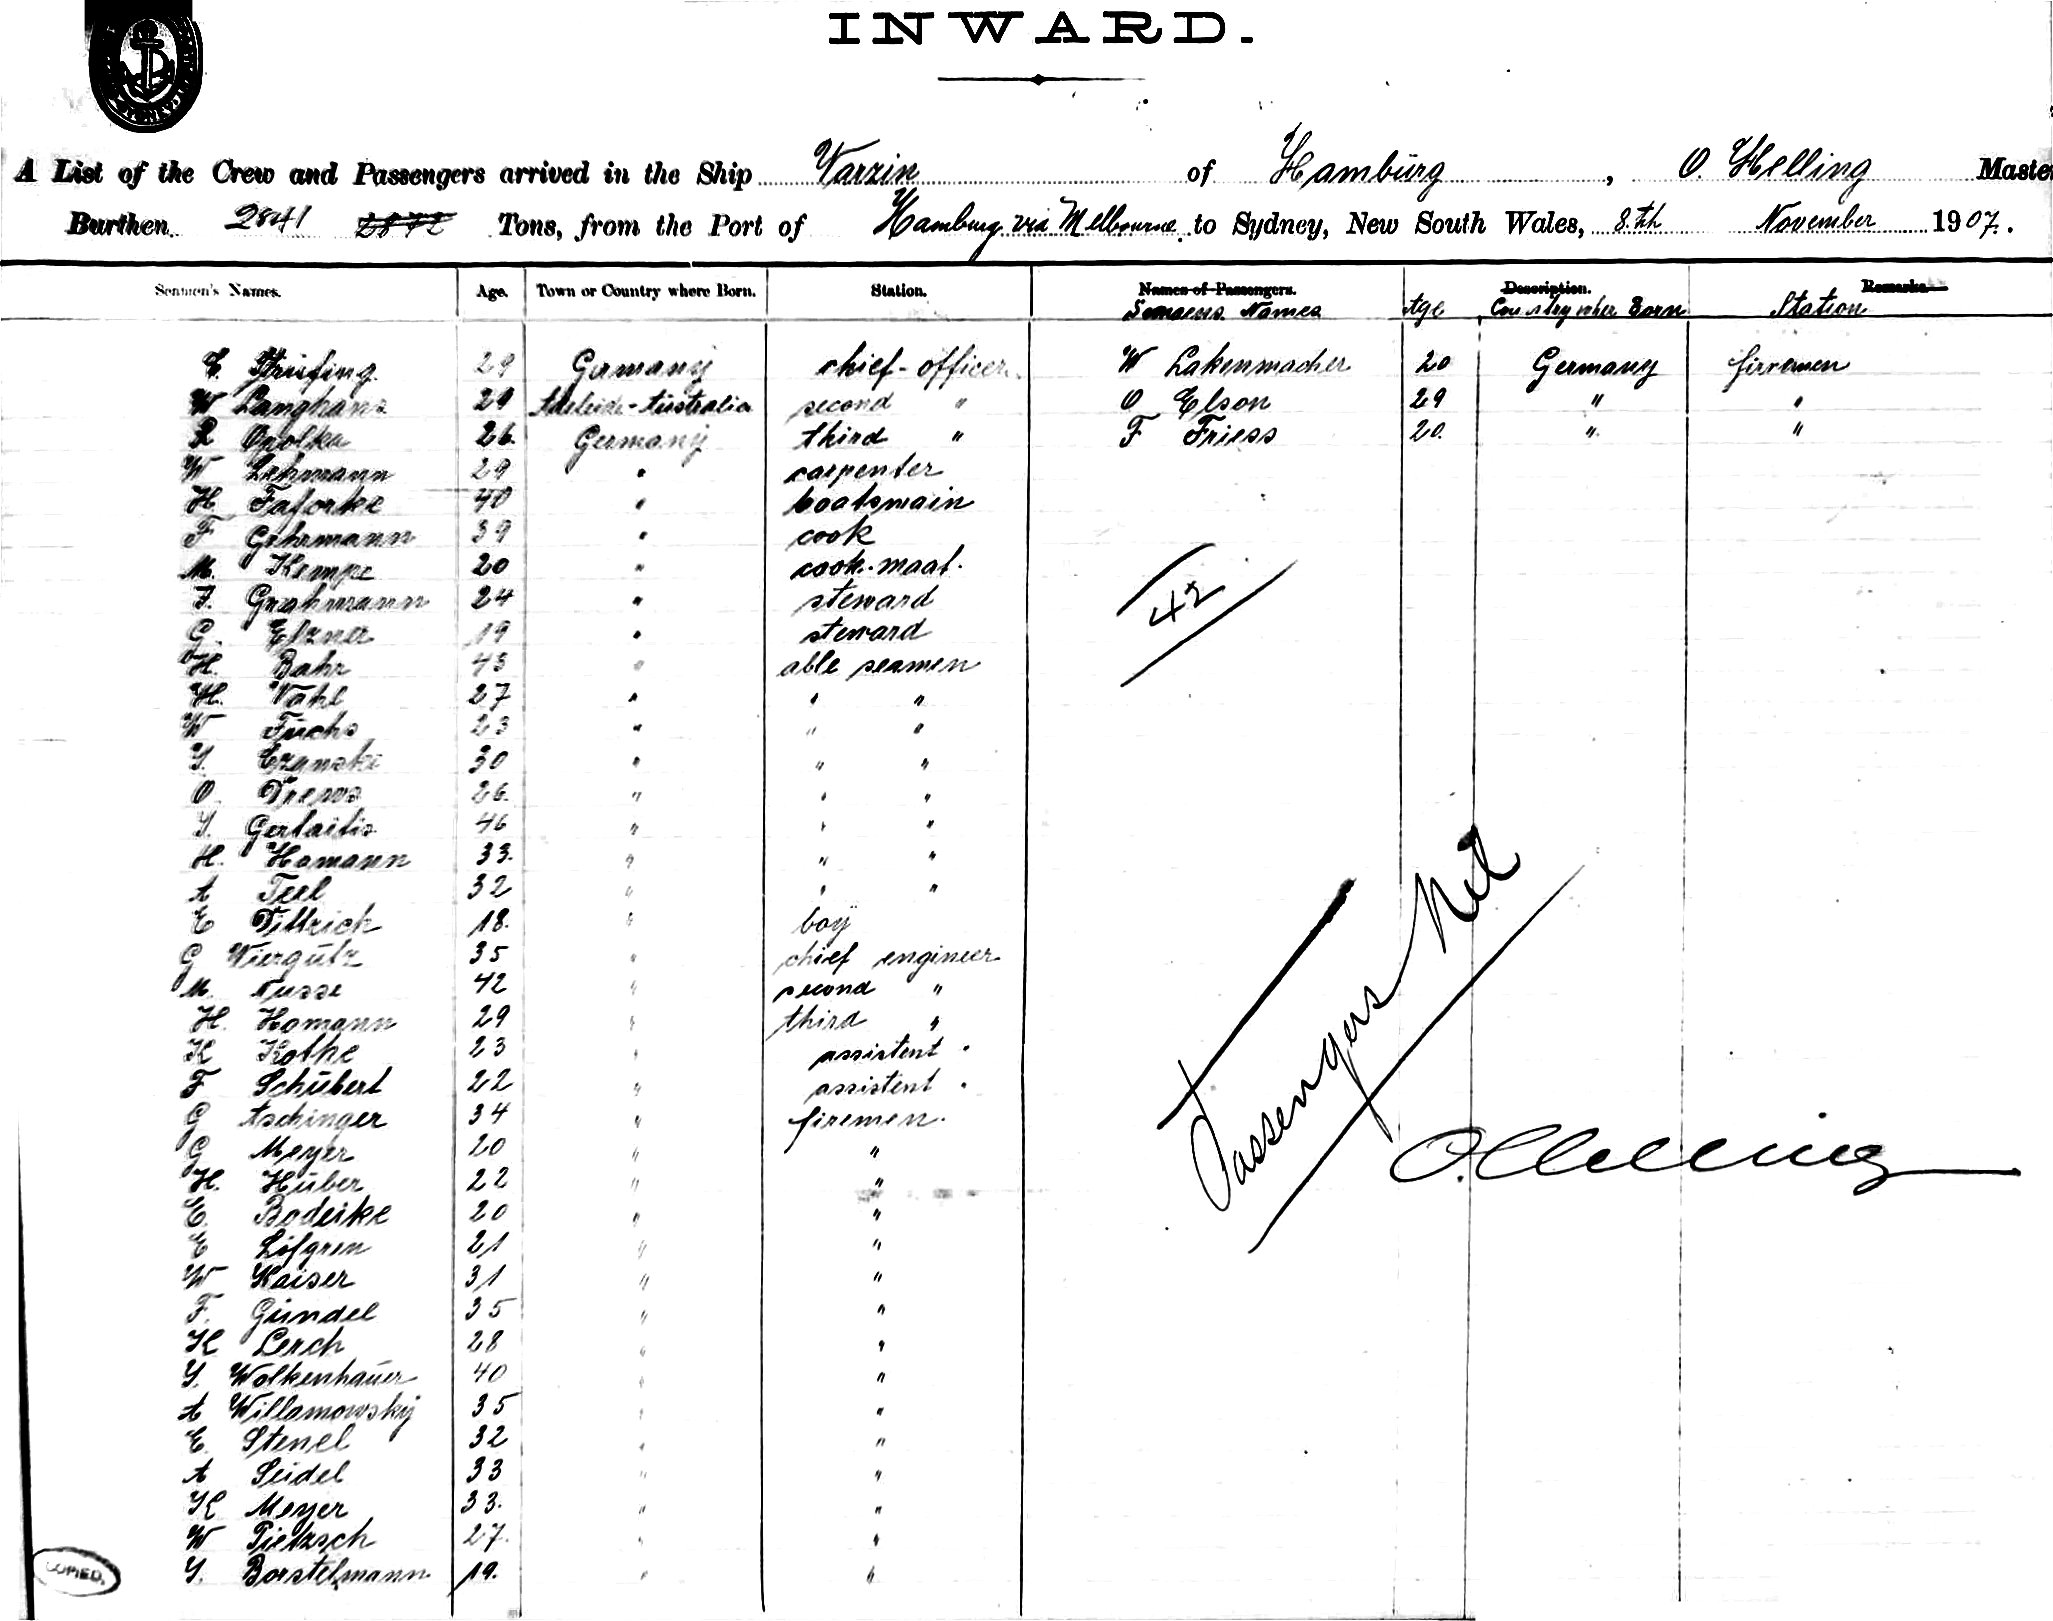 INWARD.
A List of the Crew and Passengers arrived in the Ship Varzin of Hamburg, O. Helling Master
Burthen 2841 2872 Tons, from the Port of Hamburg via Melbourne to Sydney, New South Wales, 8.th November 1907.
Seamen's Names. Age. Town or Country where Born. Station. Names of Passengers. Description. Remarks.
Seamens Names Age Country wher Born Station
29 Germany chief-officer W Lakenmacher 20 Germany firemen
W Langhans 29 Adelaide-Australia second " O Elson 29 " "
R Opolka 26. Germany third " F Friess 20. " "
W Lehmann 29 " carpenter
H Faforke 40 " boatsmain
F Gehrmann 39 " cook
M. Kempe 20 " cook-maat.
F. Grahmann 24 " steward
G. Elzner 19 " steward
H. Bahr 43 " able seamen
H. Vahl 27 " " "
W Fuchs 23 " " "
Y. Czanski 30 " " "
O. Drews 26. " " "
Y. Gerlaitis 46 " " "
H. Hamann 33. " " "
A Teel 32 " " "
E Dittrich 18. " boy
G Wiergutz 35 " chief engineer
M. Nusse 42 " second "
H. Homann 29 " third "
K Kothe 23 " assistent "
F Schubert 22 " assistent "
G Aschinger 34 " firemen.
G Meyer 20 " "
H. Huber 22 " "
E. Bodeike 20 " "
E Löfgren 21 " "
W Kaiser 31 " "
F. Gundel 35 " "
K Lerch 28 " "
Y. Wolkenhauer 40 " "
A Willamowskij 35 " "
E. Stenel 32 " "
A Seidel 33 " "
K Meyer 33. " "
W Pietzsch 27. " "
Y. Borstelmann 19. " "
42
Passengers Nil
O. Helling
COPIED.